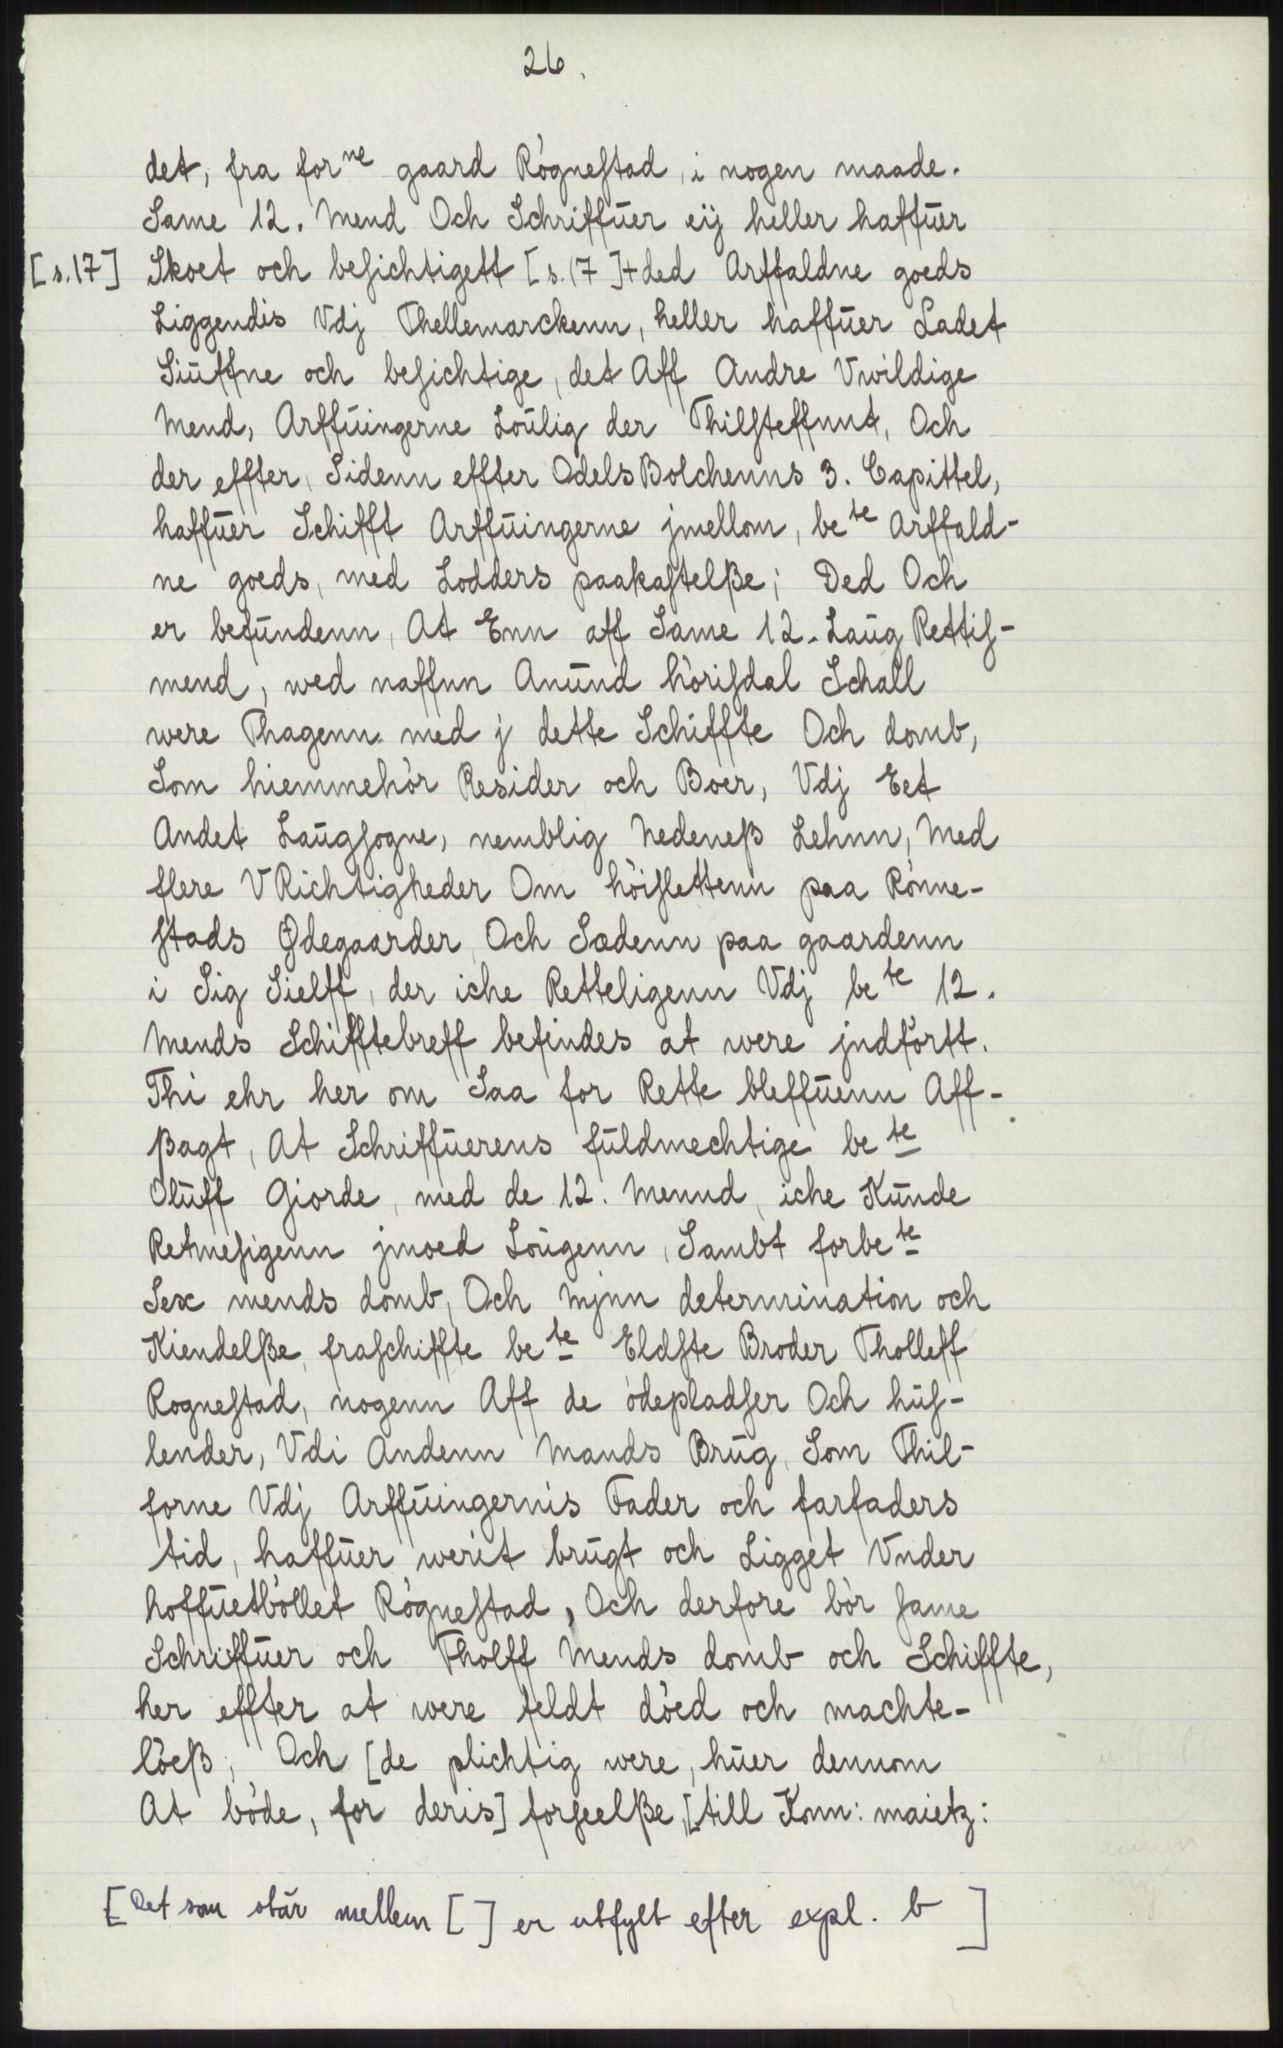 26.
det, fra forne gaard Rògnestad, i nogen maade.
Same 12. Mend Och Schriffuer eÿ heller haffuer
[s.17] Skoet och besichtigett [s.17]+ded Arffaldne goeds
Liggendis Vdj Thellemarckenn, heller haffuer Ladet
Siuffne och besichtige, det Aff Andre Vwildige
Mend, Arffuingerne Loulig der Thilsteffnnt, Och
der effter, Sidenn effter OdelsBolchenns 3. Capittel,
haffuer Schifft Arffuingerne jmellom, bete Arffald-
ne goeds, med Lodders paakastelße; Ded Och
er befundenn, At Enn aff Same 12. Laug Rettis-
mend, wed naffnn Anund hòrisdal Schall
were Thagenn med j dette Schiffte Och domb,
Som hiemmehòr Resider och Boer, Vdj Eet
Andet Laugsogne, nemblig Nedeneß Lehnn, Med
flere VRichtigheder Om hòislettenn paa Rònne-
stads Ødegaarder, Och Sædenn paa gaardenn
i Sig Sielff, der iche Retteligenn Vdj bete 12.
Mends Schifftebreff befindes at were jndfòrtt.
Thi ehr her om Saa for Rette bleffuenn Aff-
ßagt, At Schriffuerens fuldmechtige bete
Oluff Giorde, med de 12. Mennd, iche Kunde
Retmesigenn jmoed Lougenn, Sambt forbete
Sex mends domb, Och Mjnn determination och
Kiendelße, fraschiffte bete Eldste Broder Tholleff
Rognestad, nogenn Aff de òdepladser Och hus-
lender, Vdi Andenn Mands Brug, Som Thil-
forne Vdj Arffuingernis Fader och farfaders
tid, haffuer werit brugt och Ligget Vnder
hoffuetbòllet Rògnestad, Och derfore bòr same
Schriffuer och Tholff Mends domb och Schiffte,
her effter at were feldt dòed och machte-
lòeß, Och [de plichtig were, huer dennom
At bòde, for deris] forseelße, [till Konn: maietz:
[Det som står mellem [ ] er utfylt efter expl. b ]